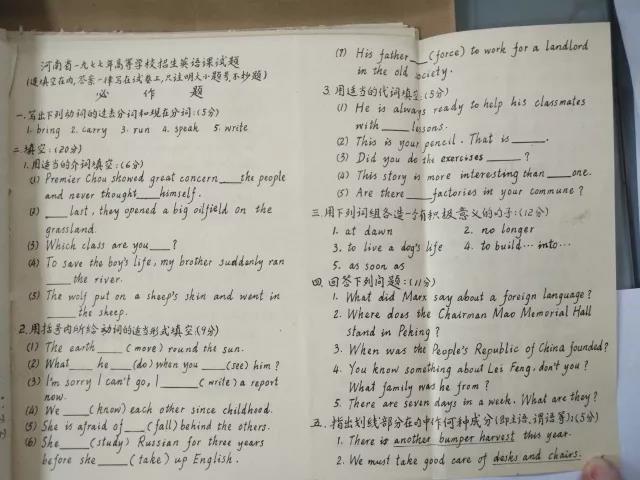 河南省一九七七年高等学校招生英语课试题
(连填空在内,答案一律写在试卷上,只注明大小题号,不抄题)
必 作 题
一.写出下列动词的过去分词和现在分词:(5分)
1. bring 2. carry 3. run 4. speak 5. write
二.填空:(20分)
1.用适当的介词填空:(6分)
(1) Premier Chou showed great concern____the people
and never thought____himself.
(2) ____last, they opened a big oilfield on the
grassland.
(3) Which class are you____?
(4) To save the boy's life, my brother suddenly ran
____the river.
(5) The wolf put on a sheep's skin and went in
____the sheep.
2.用括号内所给动词的适当形式填空:(9分)
(1) The earth____(move) round the sun.
(2) What____he____(do) when you____(see) him?
(3) I'm sorry I can't go, I____(write) a report
now.
(4) We____(know) each other since childhood.
(5) She is afraid of____(fall) behind the others.
(6) She____(study) Russian for three years
before she____(take) up English.
(7) His father____(force) to work for a landlord
in the old society.
3.用适当的代词填空:(5分)
(1) He is always ready to help his classmates
with____lessons.
(2) This is your pencil. That is____.
(3) Did you do the exercises____?
(4) This story is more interesting than____one.
(5) Are there____factories in your commune?
三.用下列词组各造一个有积极意义的句子:(12分)
1. at dawn 2. no longer
3. to live a dog's life 4. to build... into...
5. as soon as
四.回答下列问题:(11分)
1. What did Marx say about a foreign language?
2. Where does the Chairman Mao Memorial Hall
stand in Peking?
3. When was the People's Republic of China founded?
4. You know something about Lei Feng, don't you?
What family was he from?
5. There are seven days in a week. What are they?
五.指出划线部分在句中作何种成分(即主语、谓语等):(5分)
1. There is another bumper harvest this year.
2. We must take good care of desks and chairs.